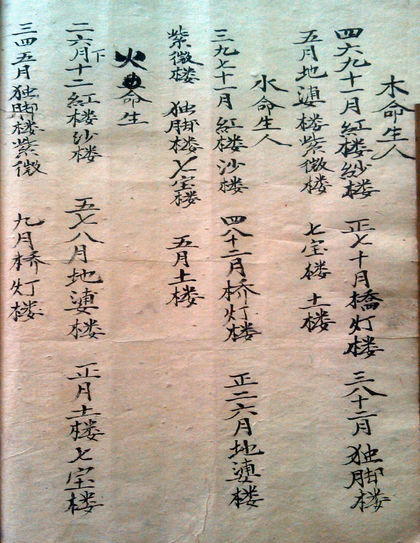 木命生人
四六九十一月紅楼紗楼 正七十月橋灯楼 三八十二月独脚楼
五月地楼紫微楼 七宝楼 土楼
水命生人
三九七十一月紅楼沙楼 四八十二月桥灯楼 正二六月地楼
紫微楼 独脚楼七宝楼 五月土楼
火命生
二六月十一下紅楼沙楼 五七八月地楼 正月土楼七宝楼
三四五月独脚楼紫微 九月桥灯楼